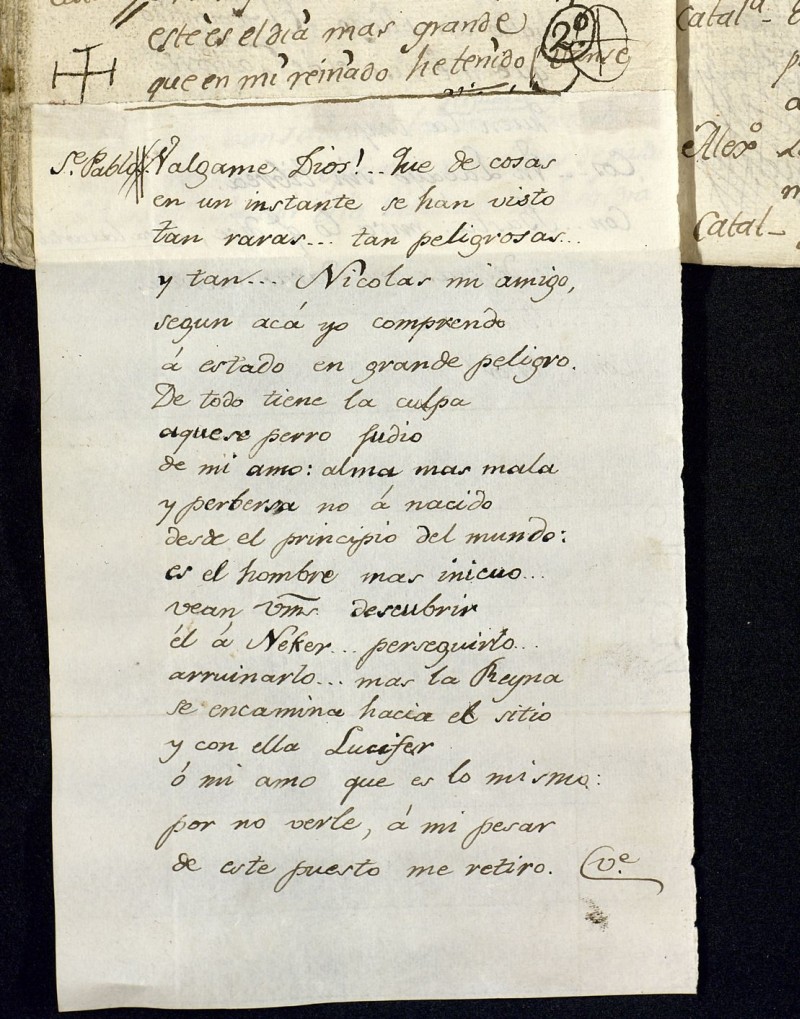 este es el dia mas grande
que en mi reinado he tenido
2º
Catala-
Alexo
Catal-
Sr. Pablo. Valgame Dios!.. Que de cosas
en un instante se han visto
tan raras... tan peligrosas...
y tan... Nicolas mi amigo,
segun acá yo comprendo
á estado en grande peligro.
De todo tiene la culpa
aquese perro Judio
de mi amo: alma mas mala
y perbersa no á nacido
desde el principio del mundo:
es el hombre mas inicuo...
vean Vms. descubrir
él á Neker... perseguirlo...
arruinarlo... mas la Reyna
se encamina hacia el sitio
y con ella Lucifer
ó mi amo que es lo mismo:
por no verle, á mi pesar
de este puesto me retiro. (ve.